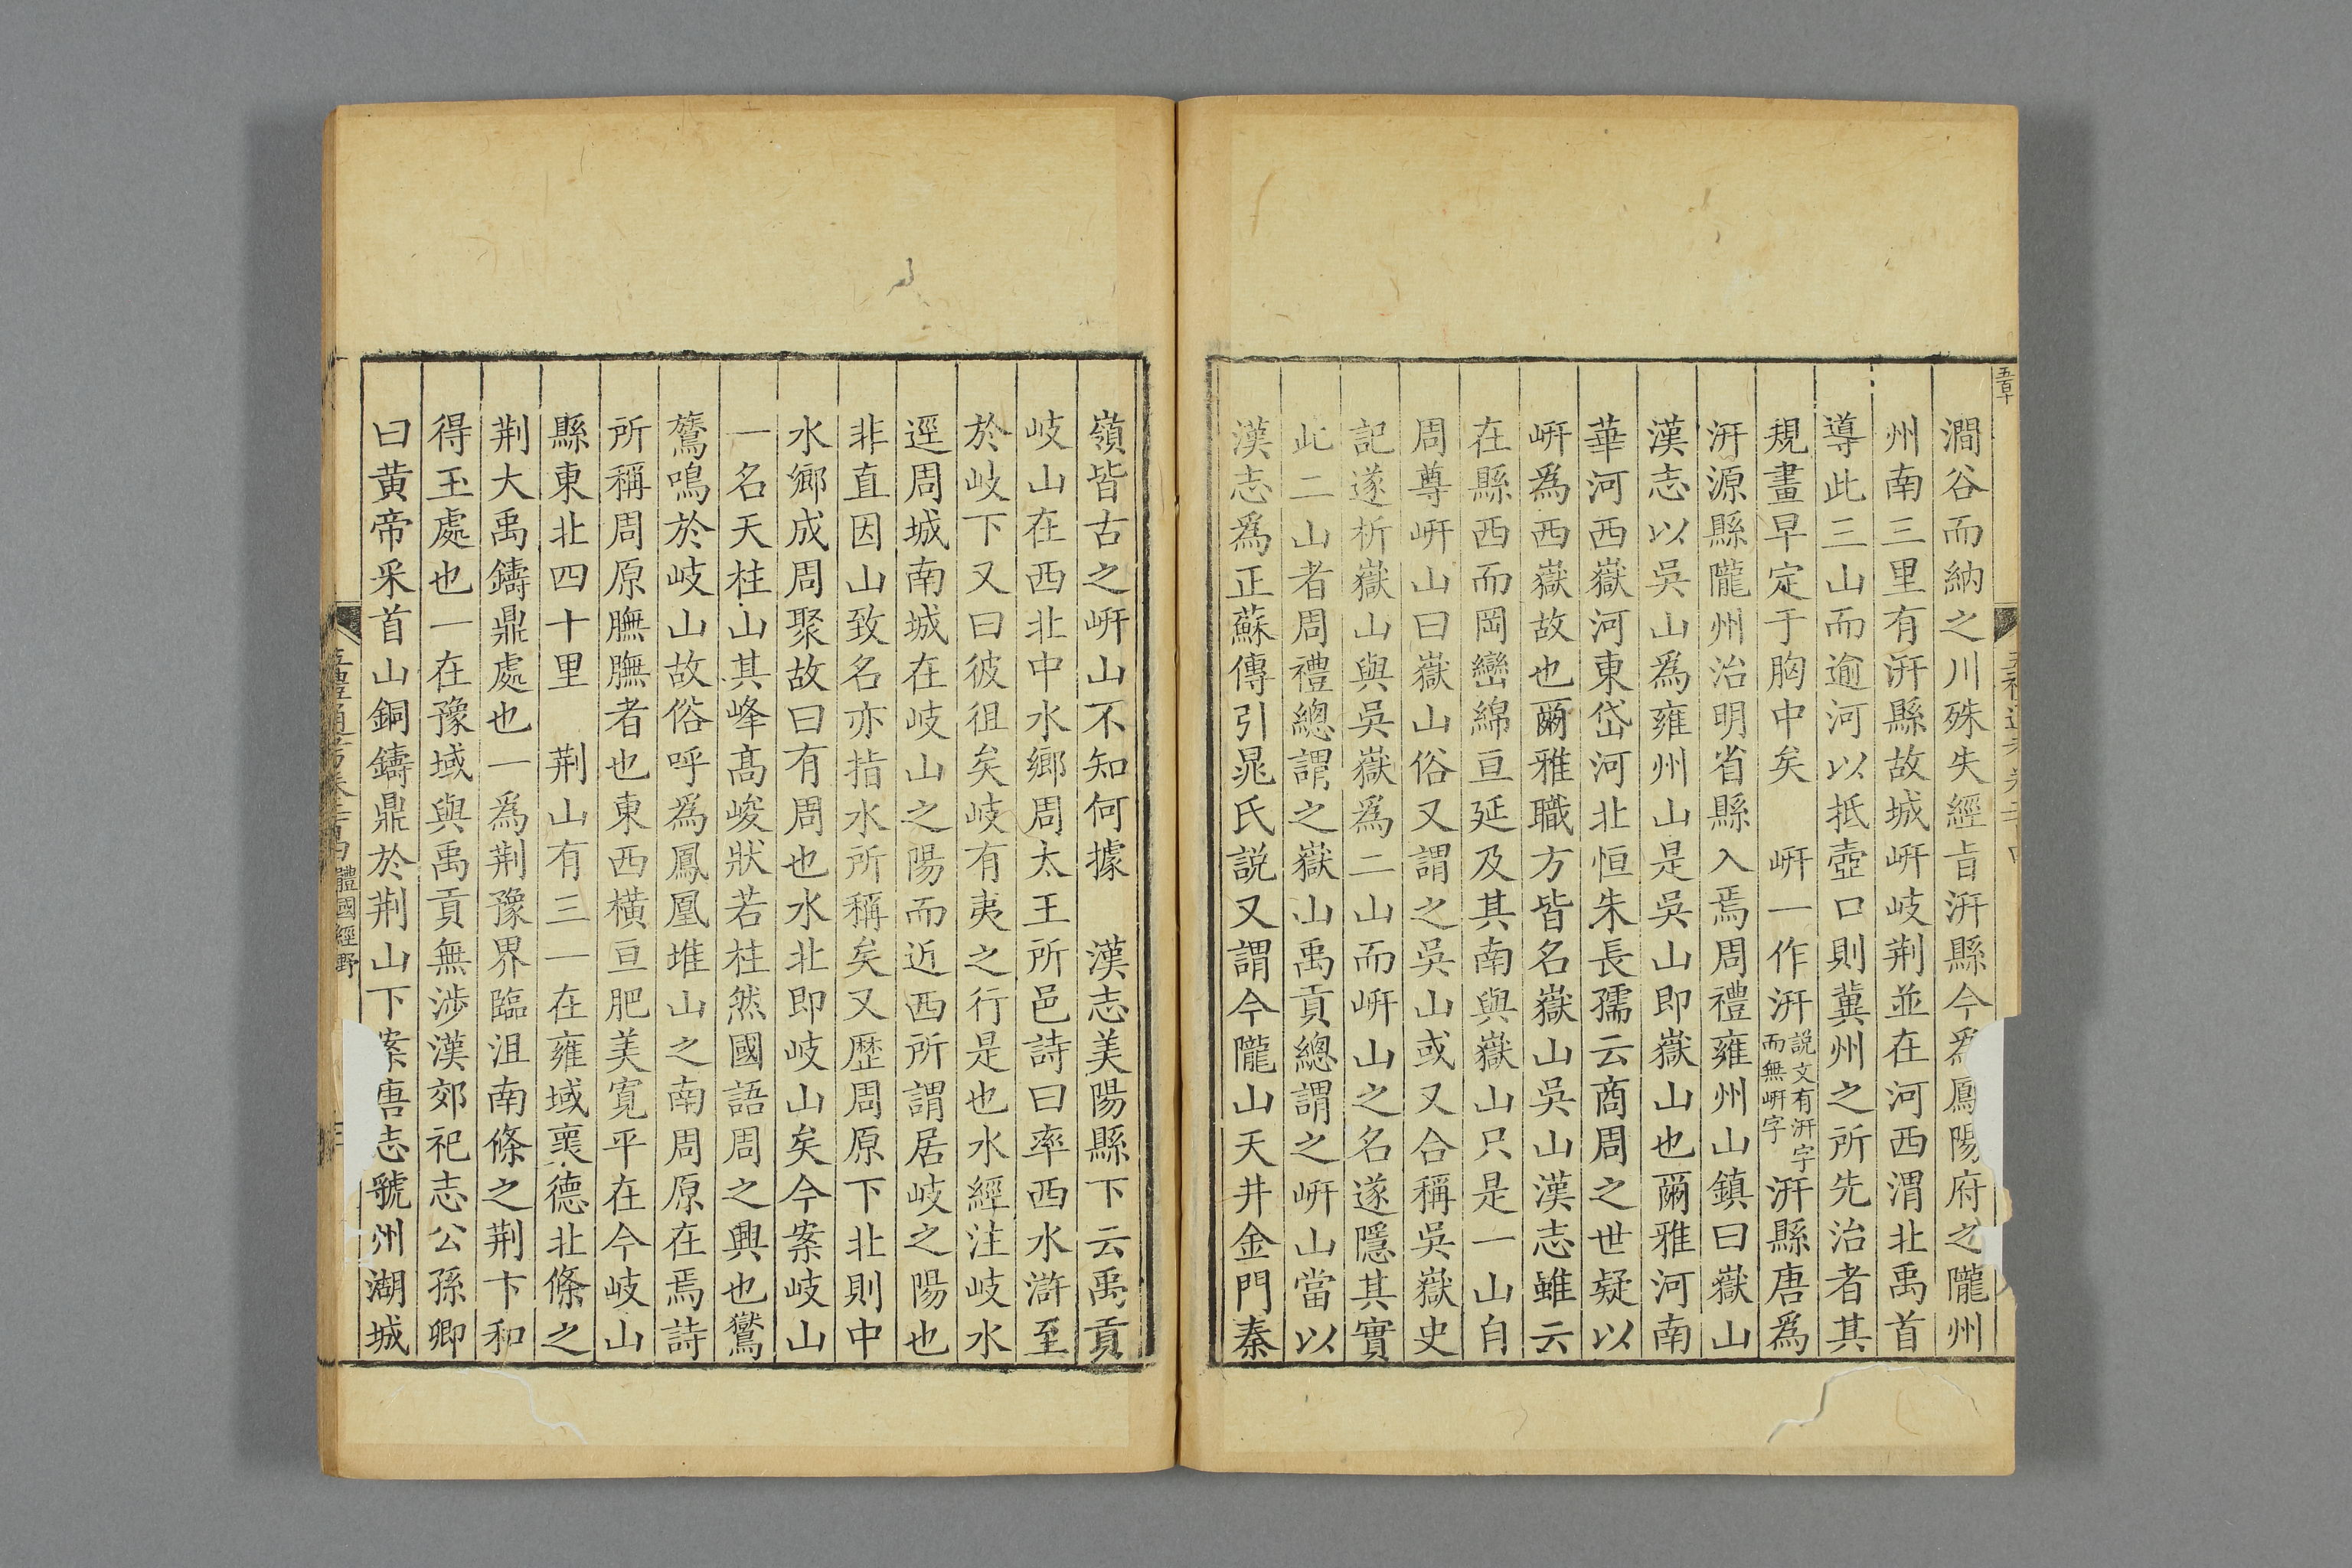 澗谷而納之川殊失經旨汧縣今爲鳳陽府之隴州
州南三里有汧縣故城岍岐荆並在河西渭北禹首
導此三山而逾河以抵壺口則冀州之所先治者其
規畫早定于胸中矣　岍一作汧説文有汧字而無岍字汧縣唐爲
汧源縣隴州治明省縣入焉周禮雍州山鎮曰嶽山
漢志以吳山爲雍州山是吳山即嶽山也爾雅河南
華河西嶽河東岱河北恒朱長孺云商周之世疑以
岍爲西嶽故也爾雅職方皆名嶽山吳山漢志雖云
在縣西而岡巒綿亘延及其南與嶽山只是一山自
周尊岍山曰嶽山俗又謂之吳山或又合稱吳嶽史
記遂析嶽山與吳嶽爲二山而岍山之名遂隱其實
此二山者周禮總謂之嶽山禹貢總謂之岍山當以
漢志爲正蘇傳引晁氏説又謂今隴山天井金門秦
嶺皆古之岍山不知何據　漢志美陽縣下云禹貢
岐山在西北中水鄉周太王所邑詩曰率西水滸至
於岐下又曰彼徂矣岐有夷之行是也水經注岐水
逕周城南城在岐山之陽而近西所謂居岐之陽也
非直因山致名亦指水所稱矣又歷周原下北則中
水鄉成周聚故曰有周也水北即岐山矣今案岐山
一名天柱山其峰髙峻狀若柱然國語周之興也鸑
鷟鳴於岐山故俗呼爲鳳凰堆山之南周原在焉詩
所稱周原膴膴者也東西横亘肥美寬平在今岐山
縣東北四十里　荆山有三一在雍域褱德北條之
荆大禹鑄鼎處也一爲荆豫界臨沮南條之荆卞和
得玉處也一在豫域與禹貢無涉漢郊祀志公孫卿
曰黄帝采首山銅鑄鼎於荆山下案唐志虢州湖城
體國經野